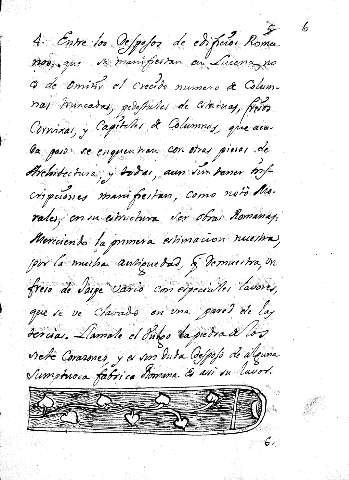 6
4. Entre los Desposos de edificios Roma-
nos, que se manifiestan en Lucena, no
es de omitir el crecido numero de Colum-
nas truncadas, pedestales de estatuas, frisos
Cornisas, y Capiteles de Columnas, que aca-
da paso se enquentran con otras piezas de
Architectura; y todas, aun sin tener ins-
cripciones manifiestan, como notò Mo-
rales, en su estructura ser obras Romanas,
Mereciendo la primera estimacion nuestra,
por la mucha antiguedad, q̃ demuestra, un
freio de Jaspe vario con especiales lavores,
que se ve Clavado en una pared de las
tercias. Llamale el Vulgo la piedra de los
siete Corazones, y es sin duda Desposo de alguna
sumptuosa fabrica Romana. Es asi su lavor.
6.